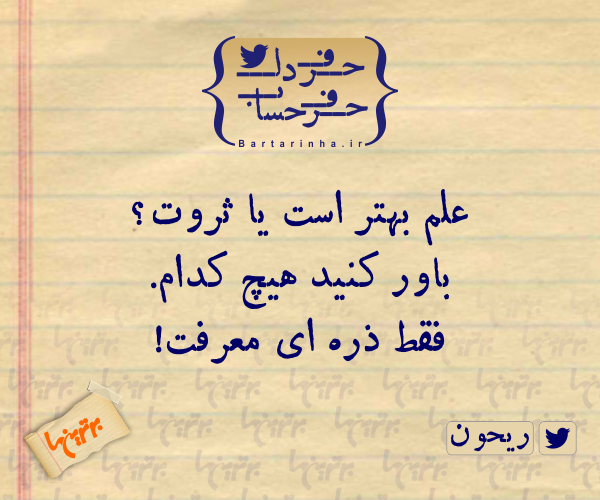 حرف دل
حرف حساب
Bartarinha.ir
علم بهتر است یا ثروت؟
باور کنید هیچ کدام.
فقط ذره ای معرفت!
برترینها
ریحون